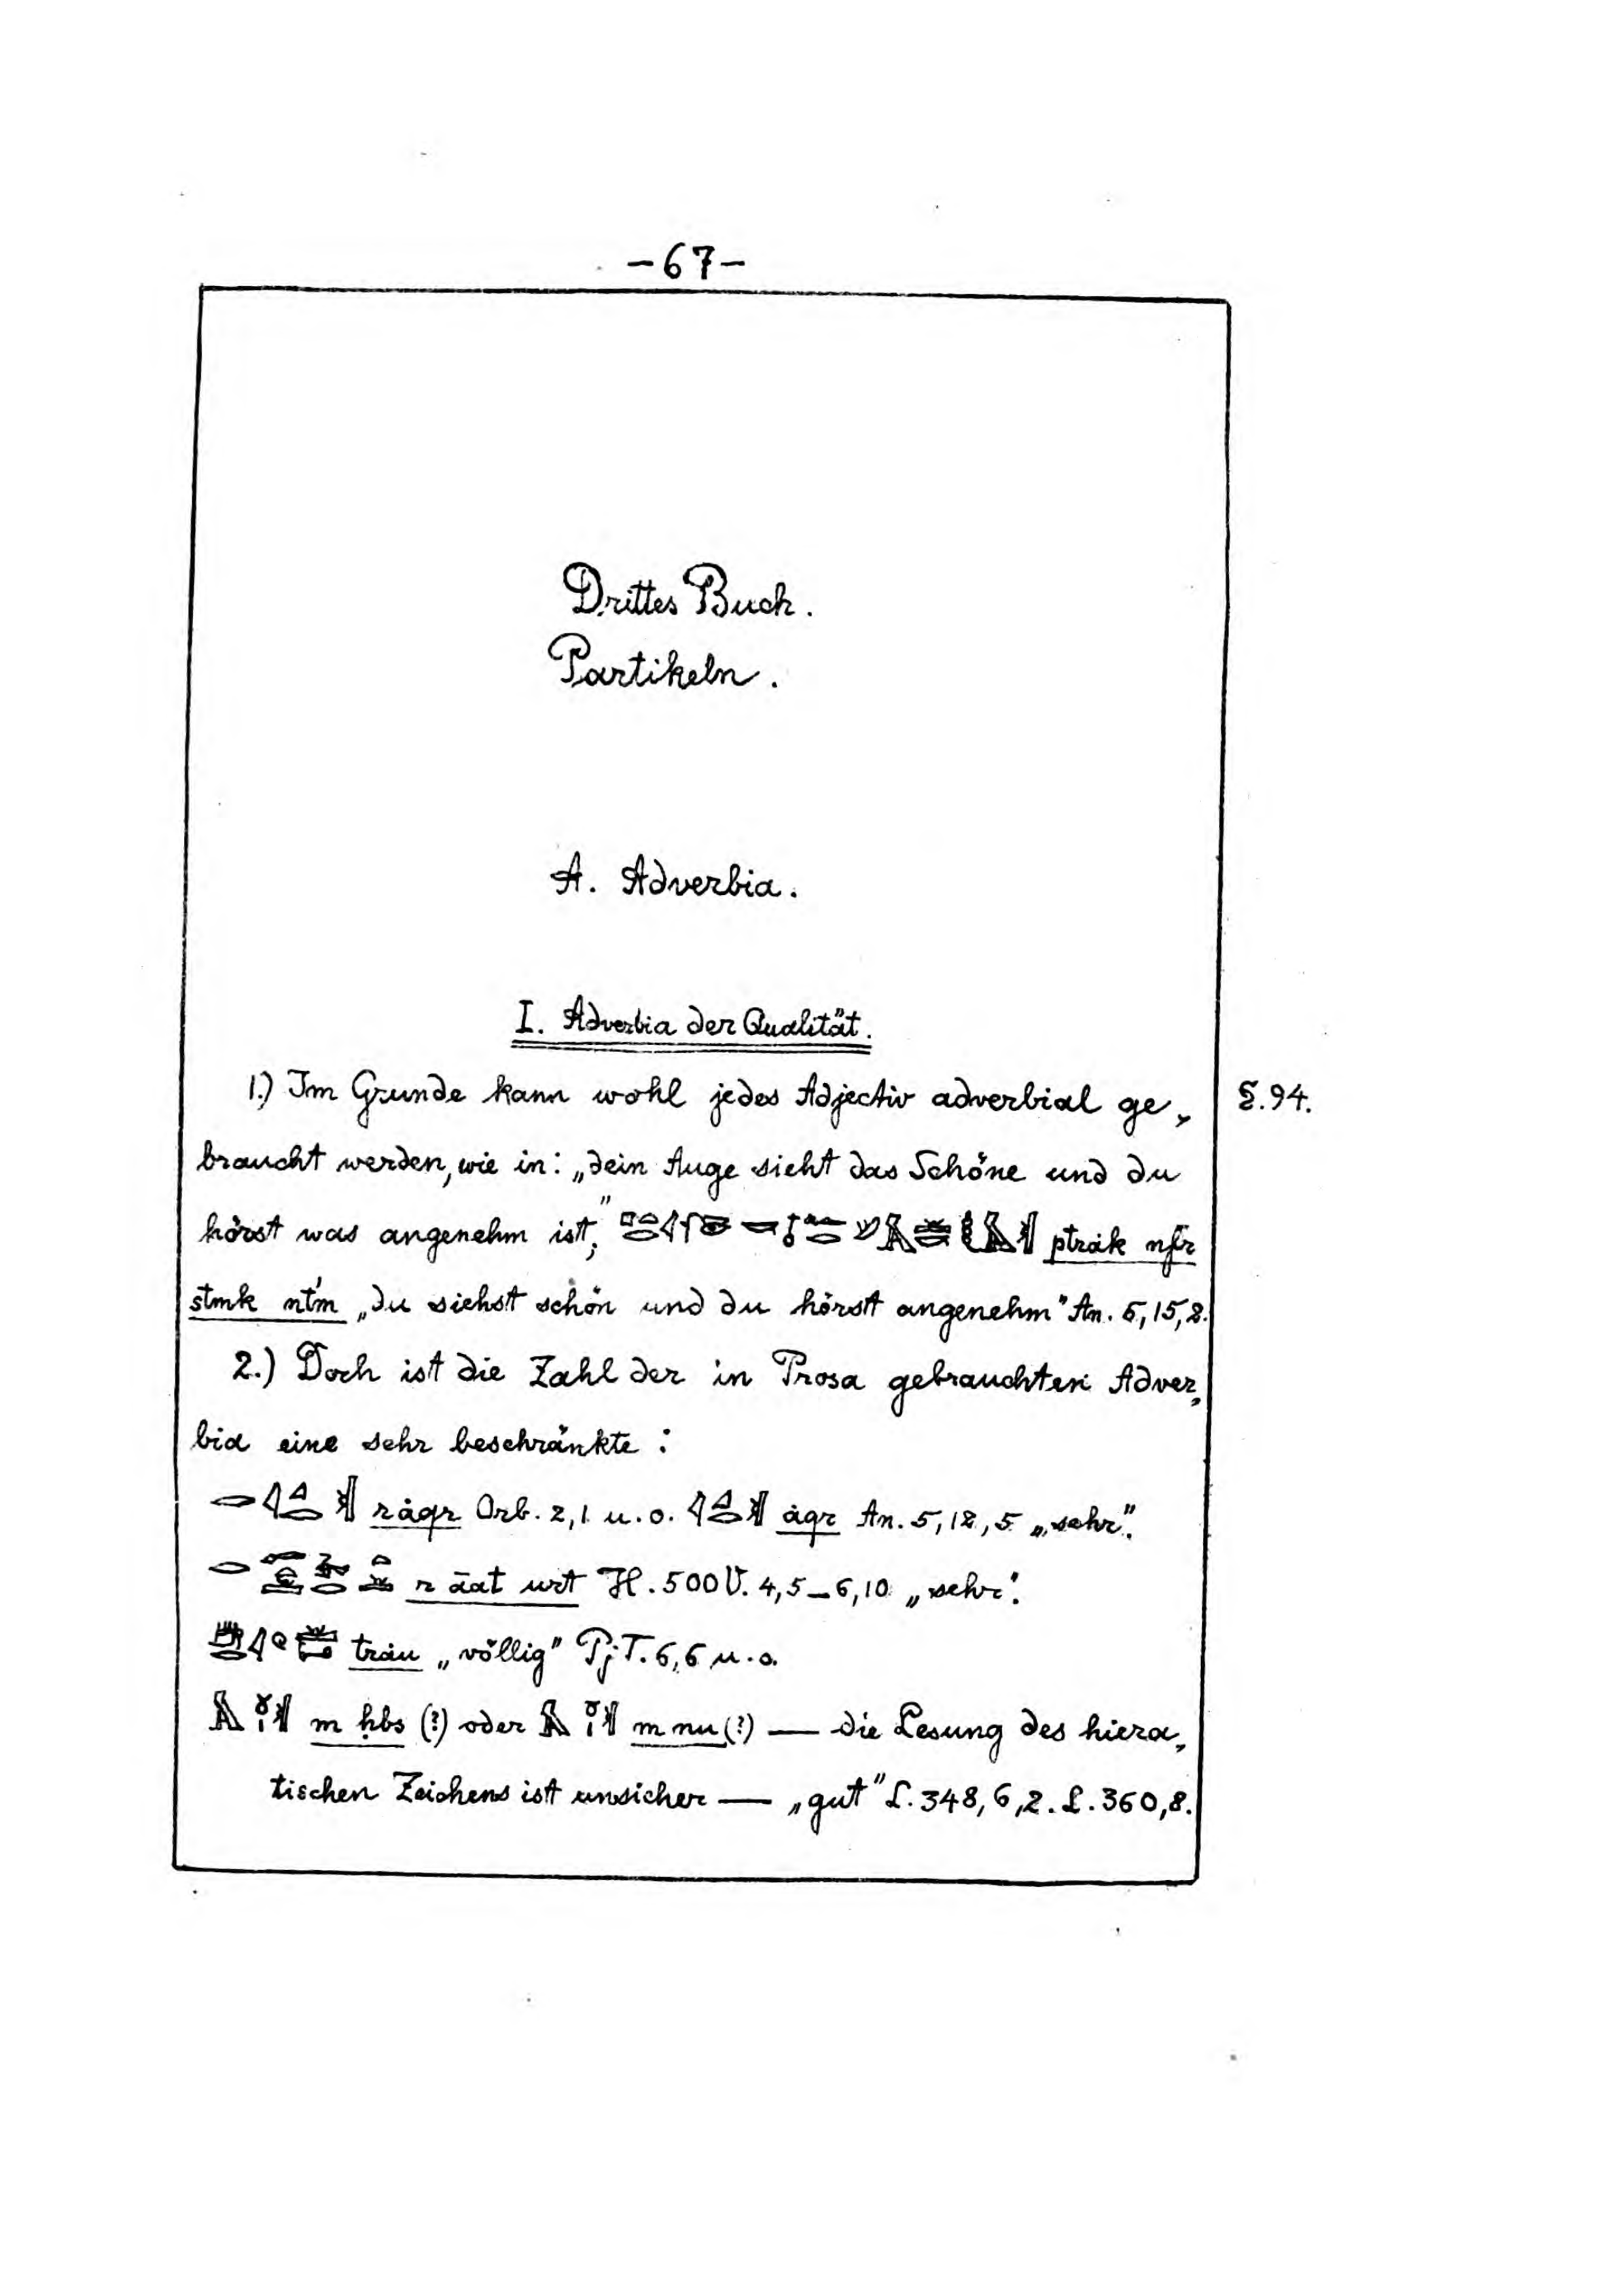 -67-
Drittes Buch.
Partikeln.
A. Adverbia.
I. Adverbia der Qualität.
1.) Im Grunde kann wohl jedes Adjectiv adverbial ge⸗ §.94.
braucht werden, wie in: „dein Auge sieht das Schöne und du
hörst was angenehm ist;" ptrȧk nfr
stmk nt'm „du siehst schön und du hörst angenehm" An. 5,15,2.
2.) Doch ist die Zahl der in Prosa gebrauchten Adver⸗
bia eine sehr beschränkte:
rȧqr Orb. 2,1 u. o. ȧqr An. 5,12,5 „sehr".
r āat urt H. 500 V. 4,5_6,10 „sehr".
trȧu „völlig" PjT. 6,6 u. o.
m ḥbs (?) oder m nu (?) — die Lesung des hiera⸗
tischen Zeichens ist unsicher — „gut" L. 348,6,2. L. 360,8.